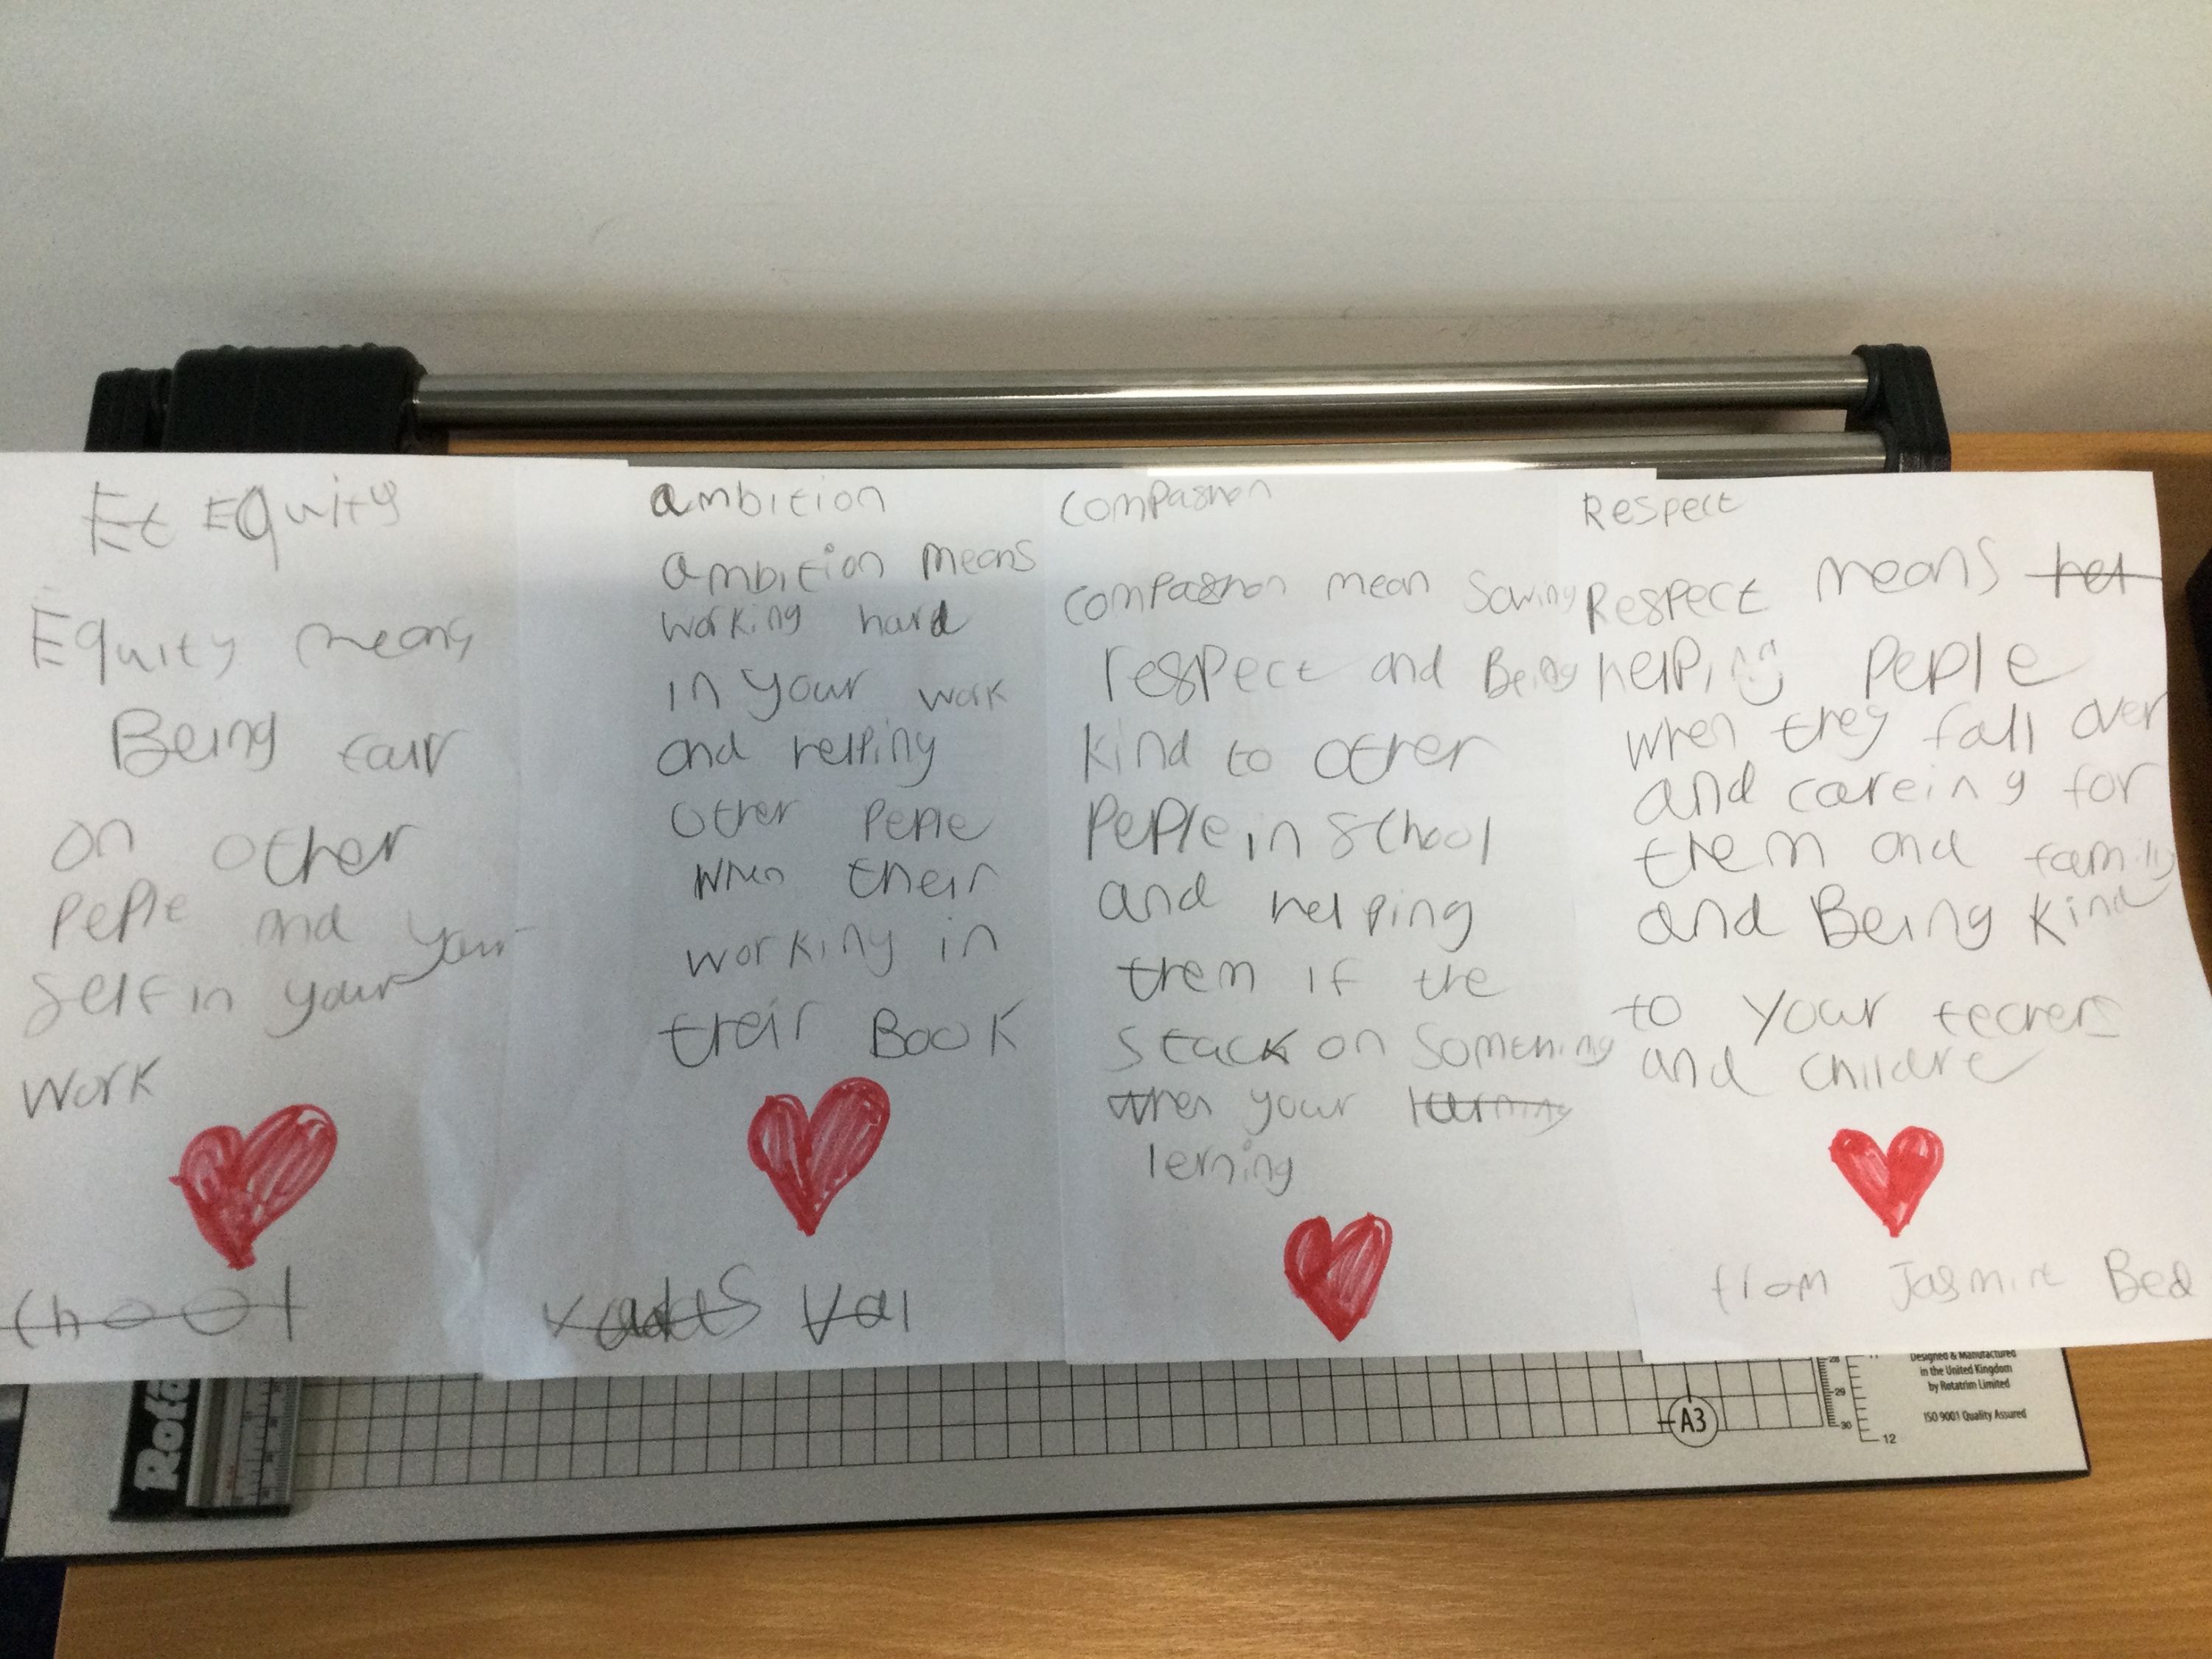 Et EQuity
Equity means
Being fair
on other
PePle and your
self in your
work
chool
ambition
ambition means
working hard
in your work
and helping
other PePle
when their
working in
their Book
Val
Compashon
Compashon mean Sowing
respect and Being
kind to other
PePle in school
and helping
them if the
stack on Something
when your lerning
lerning
Respect
Respect means hel
helping PePle
when they fall over
and careing for
them and family
and Being kind
to your techers
and childre
from Jasmine Bed
Designed & Manufactured
in the United Kingdom
by Rotatrim Limited
ISO 9001 Quality Assured
A3
28
29
30
11
12